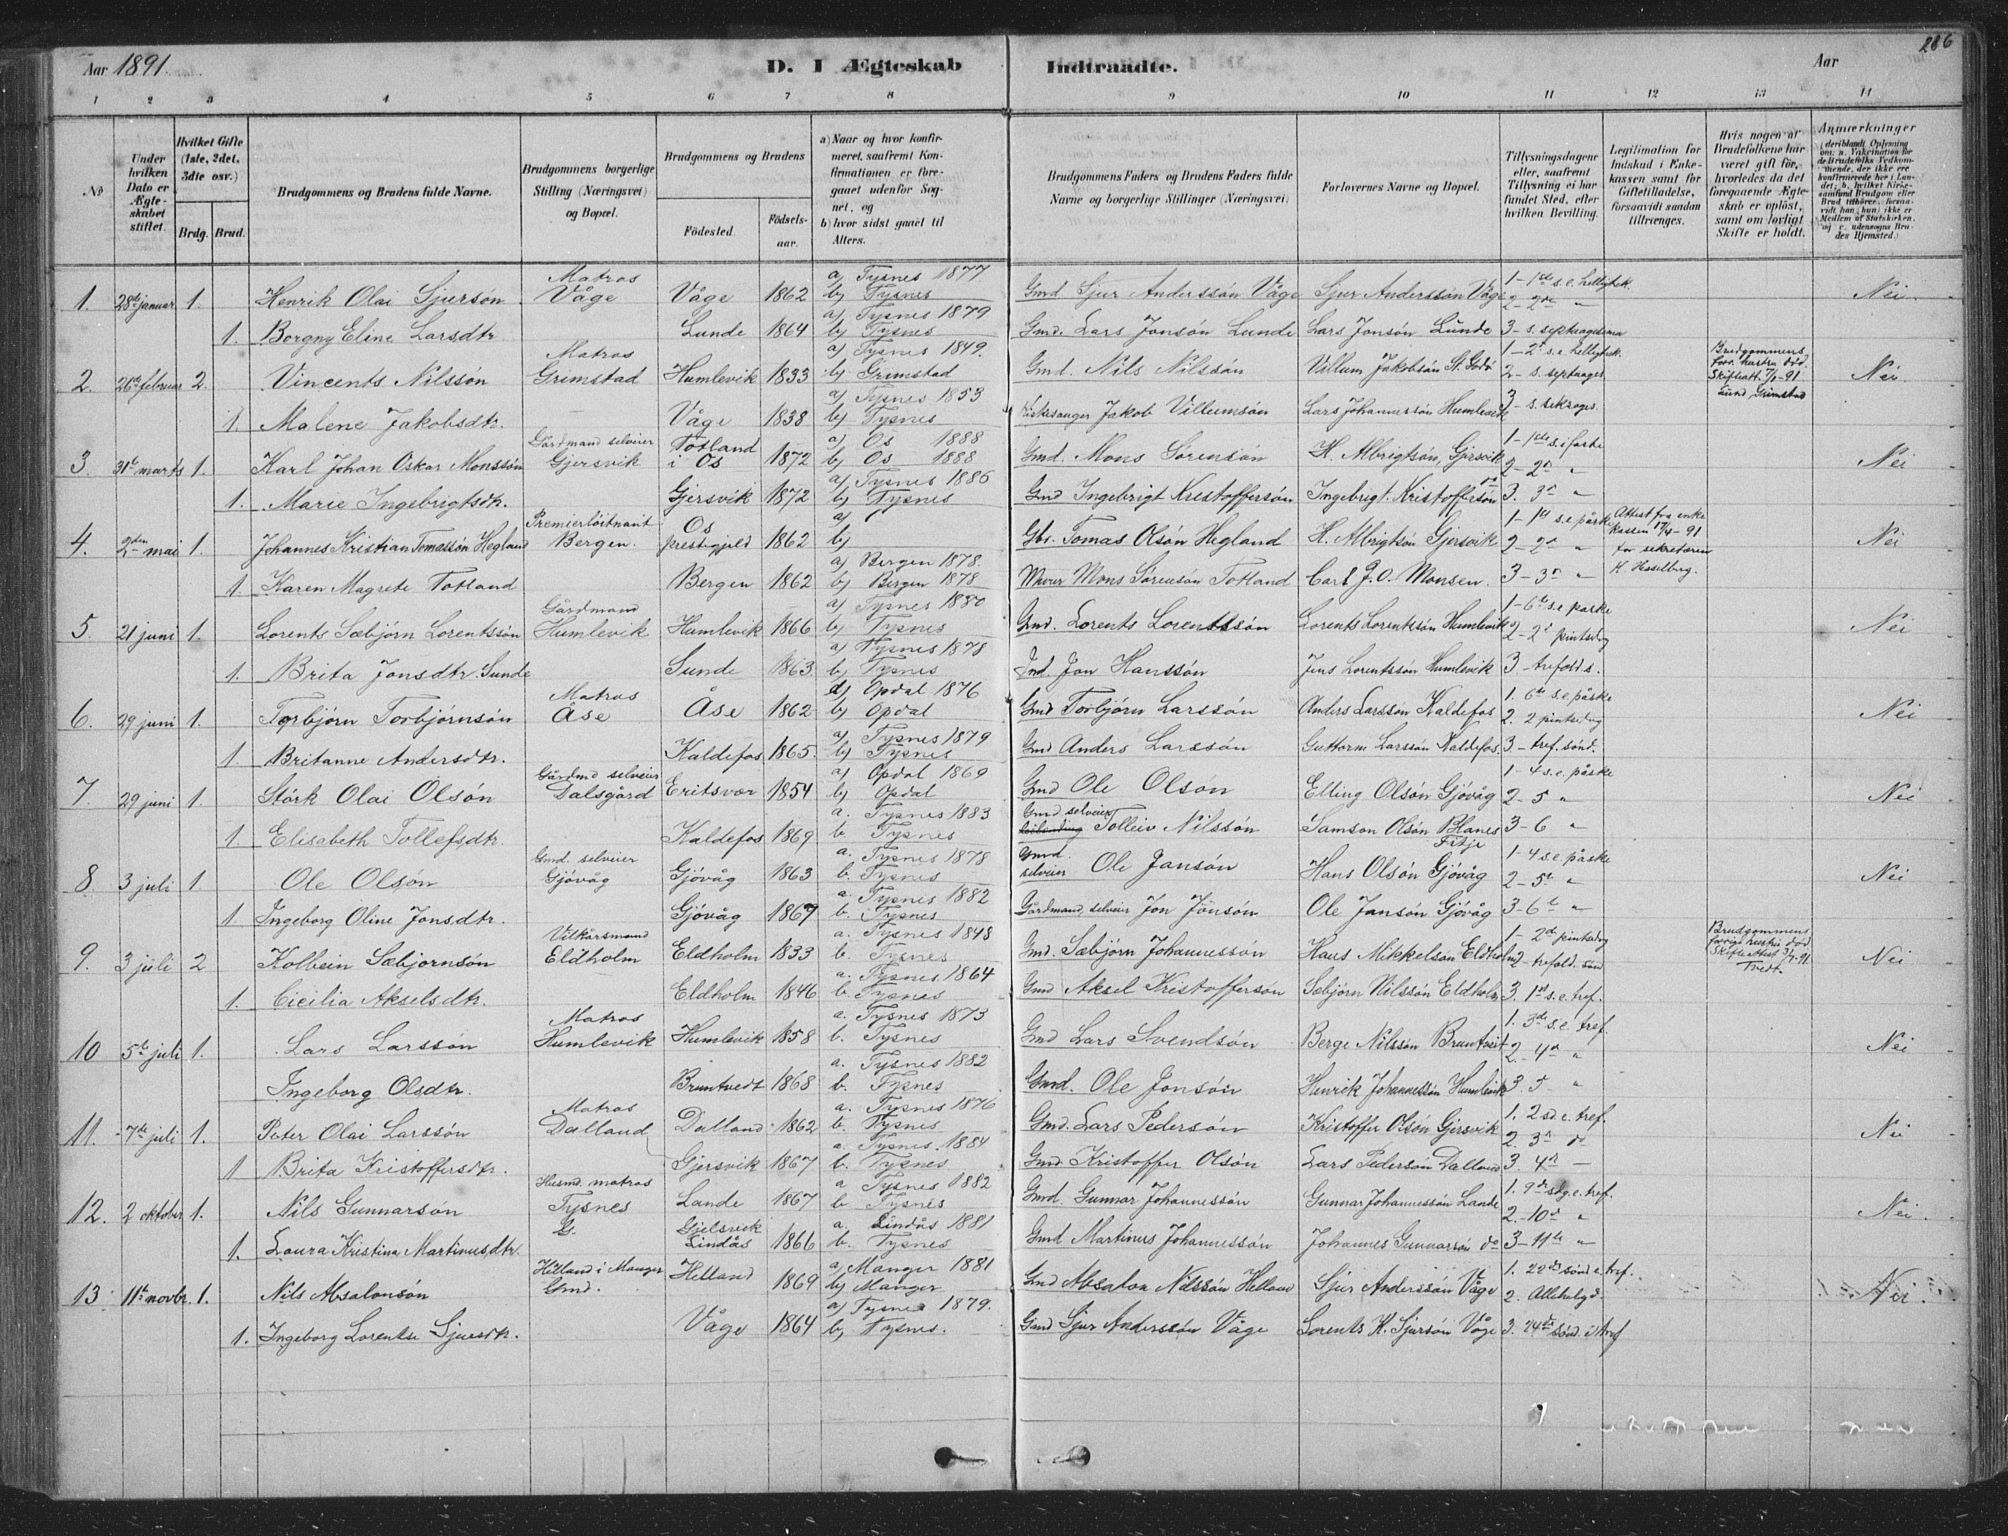 Aar 1891. D. I Ægteskab Indtraadte. Aar 266
1 2 3 4 5 6 7 8 9 10 11 12 13 14
No
Under hvilken Dato er Ægteskabet stiftet.
Hvilket Gifte (1ste, 2det, 3die osv.)
Brdg. Brud.
Brudgommens og Brudens fulde Navne.
Brudgommens borgerlige Stilling (Næringsvei) og Bopæl.
Brudgommens og Brudens
Fødested. Fødselsaar.
a) Naar og hvor konfirmeret, saafremt Konfirmationen er foregaaet udenfor Sognet, og
b) hvor sidst gaaet til Alters.
Brudgommens Faders og Brudens Faders fulde Navne og borgerlige Stillinger (Næringsvei)
Forlovernes Navne og Bopæl.
Tillysningsdagene eller, saafremt Tillysning ei har fundet Sted, efter hvilken Bevilling.
Legitimation for Indskud i Enkekassen samt for Giftetilladelse, forsaavidt saadan tiltrænges.
Hvis nogen af Brudefolkene har været gift før, hvorledes da det foregaaende Ægteskab er opløst, samt om lovligt Skifte er holdt.
Anmærkninger
Matros a) Tysnes 1877 1-1ste s. e. helligtrek.
1. 28de januar 1. Henrik Olai Sjursøn Våge Våge 1862 b) Tysnes Gmd Sjur Anderssøn Våge Sjur Anderssøn Våge 2-2den " Nei.
a) Tysnes 1879
1. Borgny Eline Larsdtr. Lunde 1864 b) Tysnes Gmd. Lars Jonsøn Lunde Lars Jonsøn Lunde 3-s. septuagesima
Matros a) Tysnes 1849. 1-2d s. e. helligtrek. Brudgommens
2. 26de februar 2. Vincents Nilssøn Grimstad Humlevik 1833 b) Grimstad Gmd. Nils Nilssøn Villum Jakobsøn St. Godø 2-s. septuages. forr. hustru død. Skifteatt. 7/1-91 Lund, Grimstad Nei.
a) Tysnes 1853
1. Malene Jakobsdtr. Våge 1838 b) Tysnes Kirkesanger Jakob Villumsøn Lars Johannessøn Humlevik 3-s. seksages.
Gårdmand selveier Totland a) Os 1888 1-1ste s. i faste
3 31te marts 1. Karl Johan Oskar Monssøn Gjersvik i Os 1872 b) Os 1888 Gmd. Mons Sørensøn H. Albrigtsøn, Gjersvik 2-2n " Nei
a) Tysnes 1886
1. Marie Ingebrigtsdtr. Gjersvik 1872 b) Tysnes Gmd Ingebrigt Kristoffersøn Ingebrigt Kristoffersøn 3. 3n "
Premierløitnant Os a) 1-1st s. e. påske Attest fra enke
4. 2den mai 1. Johannes Kristian Tomassøn Hegland Bergen. prestegjeld 1862 b) Gbr. Tomas Olsøn Hegland H. Albrigtsøn Gjersvik 2-2n " kassen 17/4-91 for sekretæren H. Hesselberg. Nei
a) Bergen 1878.
1. Karen Magrete Totland Bergen 1862 b) Bergen 1878 Murer Mons Sørensøn Totland Carl J. O. Monsen. 3-3n "
Gårdmand a) Tysnes 1880 1-6te s. e. påske
5. 21 juni 1. Lorents Sæbjørn Lorentssøn Humlevik Humlevik 1866 b) Tysnes Gmd. Lorents Lorentssøn Lorents Lorentsøn Humlevik 2-2d pintsedag Nei
a) Tysnes 1878
1. Brita Jonsdtr. Sunde Sunde 1863. b) Tysnes Gmd. Jon Hanssøn Jens Lorentssøn Humlevik 3-trefold s.
Matros a) Opdal 1876 1. 6te s. e. påske
6. 29 juni 1. Torbjørn Torbjørnsøn Åse Åse 1862 b) Opdal Gmd Torbjørn Larssøn Anders Larssøn Kaldefos 2. 2 pintsedag Nei
a) Tysnes 1879
1. Britanne Andersdtr. Kaldefos 1865. b) Tysnes Gmd Anders Larssøn Guttorm Larssøn Kaldefos 3-tref. sønd.
Gårdmd selveier a) Opdal 1869 1-4 s. e. påske
7. 29 juni 1. Størk Olai Olsøn Dalsgård Eritsvær 1854 b) Opdal Gmd Ole Olsøn Elling Olsøn Gjøvåg 2-5 " Nei
a. Tysnes 1883 Gmd selveier
1. Elisabeth Tollefsdtr. Kaldefos 1869. b. Tysnes Tolleiv Nilssøn Samson Olsøn Blanes Fitje 3-6 "
Gmd. selveier a. Tysnes 1878 Gmd. 1-4 s. e. påske
8. 3 juli 1. Ole Olsøn Gjøvåg Gjøvåg 1863 b. Tysnes selveier Ole Jansøn Hans Olsøn Gjøvåg 2-5te " Nei
a. Tysnes 1882
1. Ingeborg Oline Jonsdtr. Gjøvåg 1867 b. Tysnes Gårdmand, selveier Jon Jonsøn Ole Jansøn Gjøvåg 3-6te "
Vilkårsmand a. Tysnes 1848 1-2d pintsedag Brudgommens
9. 3 juli 2 Kolbein Sæbjørnsøn Eldholm Eldholm 1833 b. Tysnes Gmd. Sæbjørn Johannessøn Hans Mikkelsøn Eldholm 2-trefold. sønd forrige hustru død Skifteattest 3/7-91 Tvedt. Nei
a. Tysnes 1864
1. Cicilia Akselsdtr. Eldholm 1846 b. Tysnes Gmd Aksel Kristoffersøn Sæbjørn Nilssøn Eldholm 3. 1st s. e. tref.
Matros a. Tysnes 1873 1. 3die s. e. tref.
10 5te juli 1. Lars Larssøn Humlevik Humlevik 1858 b. Tysnes Gmd Lars Svendsøn Berge Nilssøn Bruntveit 2. 4n " Nei
a. Tysnes 1882
Ingeborg Olsdtr. Bruntvedt 1868 b. Tysnes Gmd. Ole Jonsøn Henrik Johannessøn Humlevik 3. 5 "
Matros a. Tysnes 1876 1. 2 sd. e. tref.
11. 7de juli 1. Peter Olai Larssøn Dalland Dalland 1862 b. Tysnes Gmd. Lars Pedersøn Kristoffer Olsøn Gjersvik 2. 3n do Nei
a. Tysnes. 1884
1 Brita Kristoffersdtr. Gjersvik 1867 b. Tysnes Gmd. Kristoffer Olsøn Lars Pedersøn Dalland 3. 4n -
Husmd. matros a Tysnes 1882 1. 9de sdg. e. tref.
12. 2 oktober 1. Nils Gunnarsøn Tysnes Lande 1867 b Tysnes Gmd. Gunnar Johannessøn Gunnar Johannessøn Lande 2.-10d " Nei.
G. Gjelsvik a. Lindås 1881
1. Laura Kristina Martinusdtr. Lindås 1866 b. Tysnes Gmd Martinus Johannessøn Johannes Gunnarsøn do 3-11te "
Helland i Manger a) Manger 1881 1. 22de sønd e. tref.
13 11te novbr. 1. Nils Absalonsøn Gmd. Helland 1869 b) Manger Gmd Absalon Nilssøn Helland Sjur Anderssøn Våge 2. Allehelgd. Nei.
a) Tysnes 1879.
1. Ingeborg Lorentse Sjursdtr. Våge 1864 b) Tysnes. Gmd Sjur Anderssøn Våge Lorents H. Sjursøn Våge 3. 24de sønd. e. tref